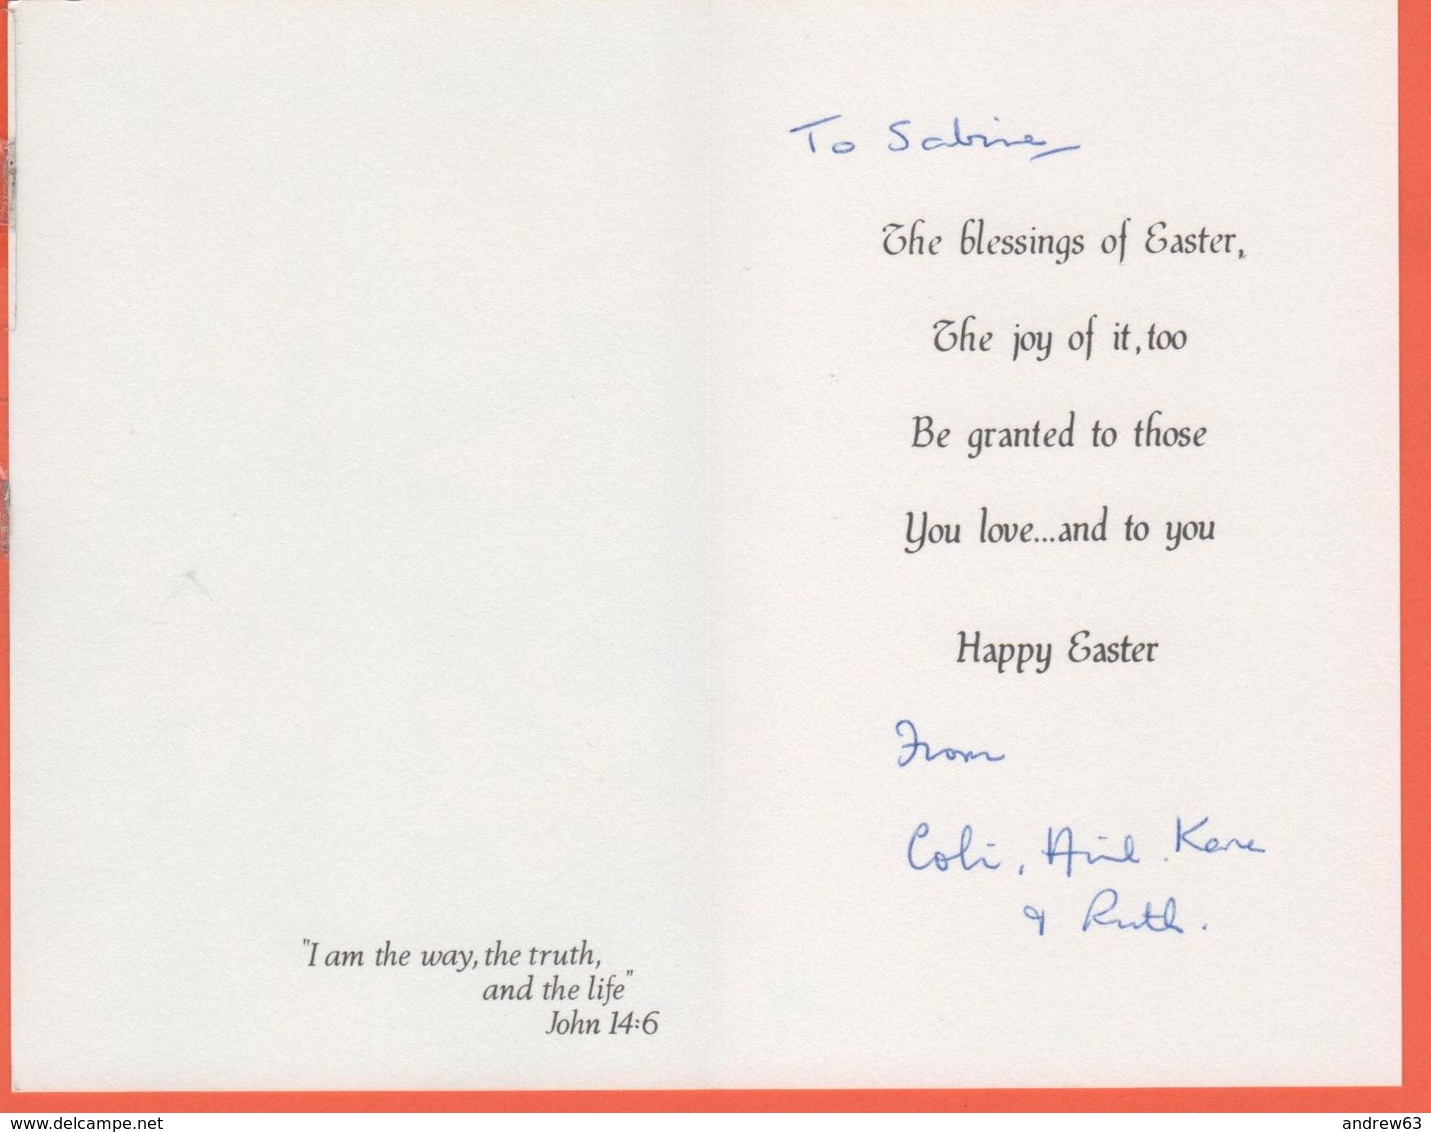 "I am the way, the truth,
and the life"
John 14:6
To Sabine
The blessings of Easter,
The joy of it, too
Be granted to those
You love...and to you
Happy Easter
From
Colin,
& Ruth.
www.delcampe.net
andrew63